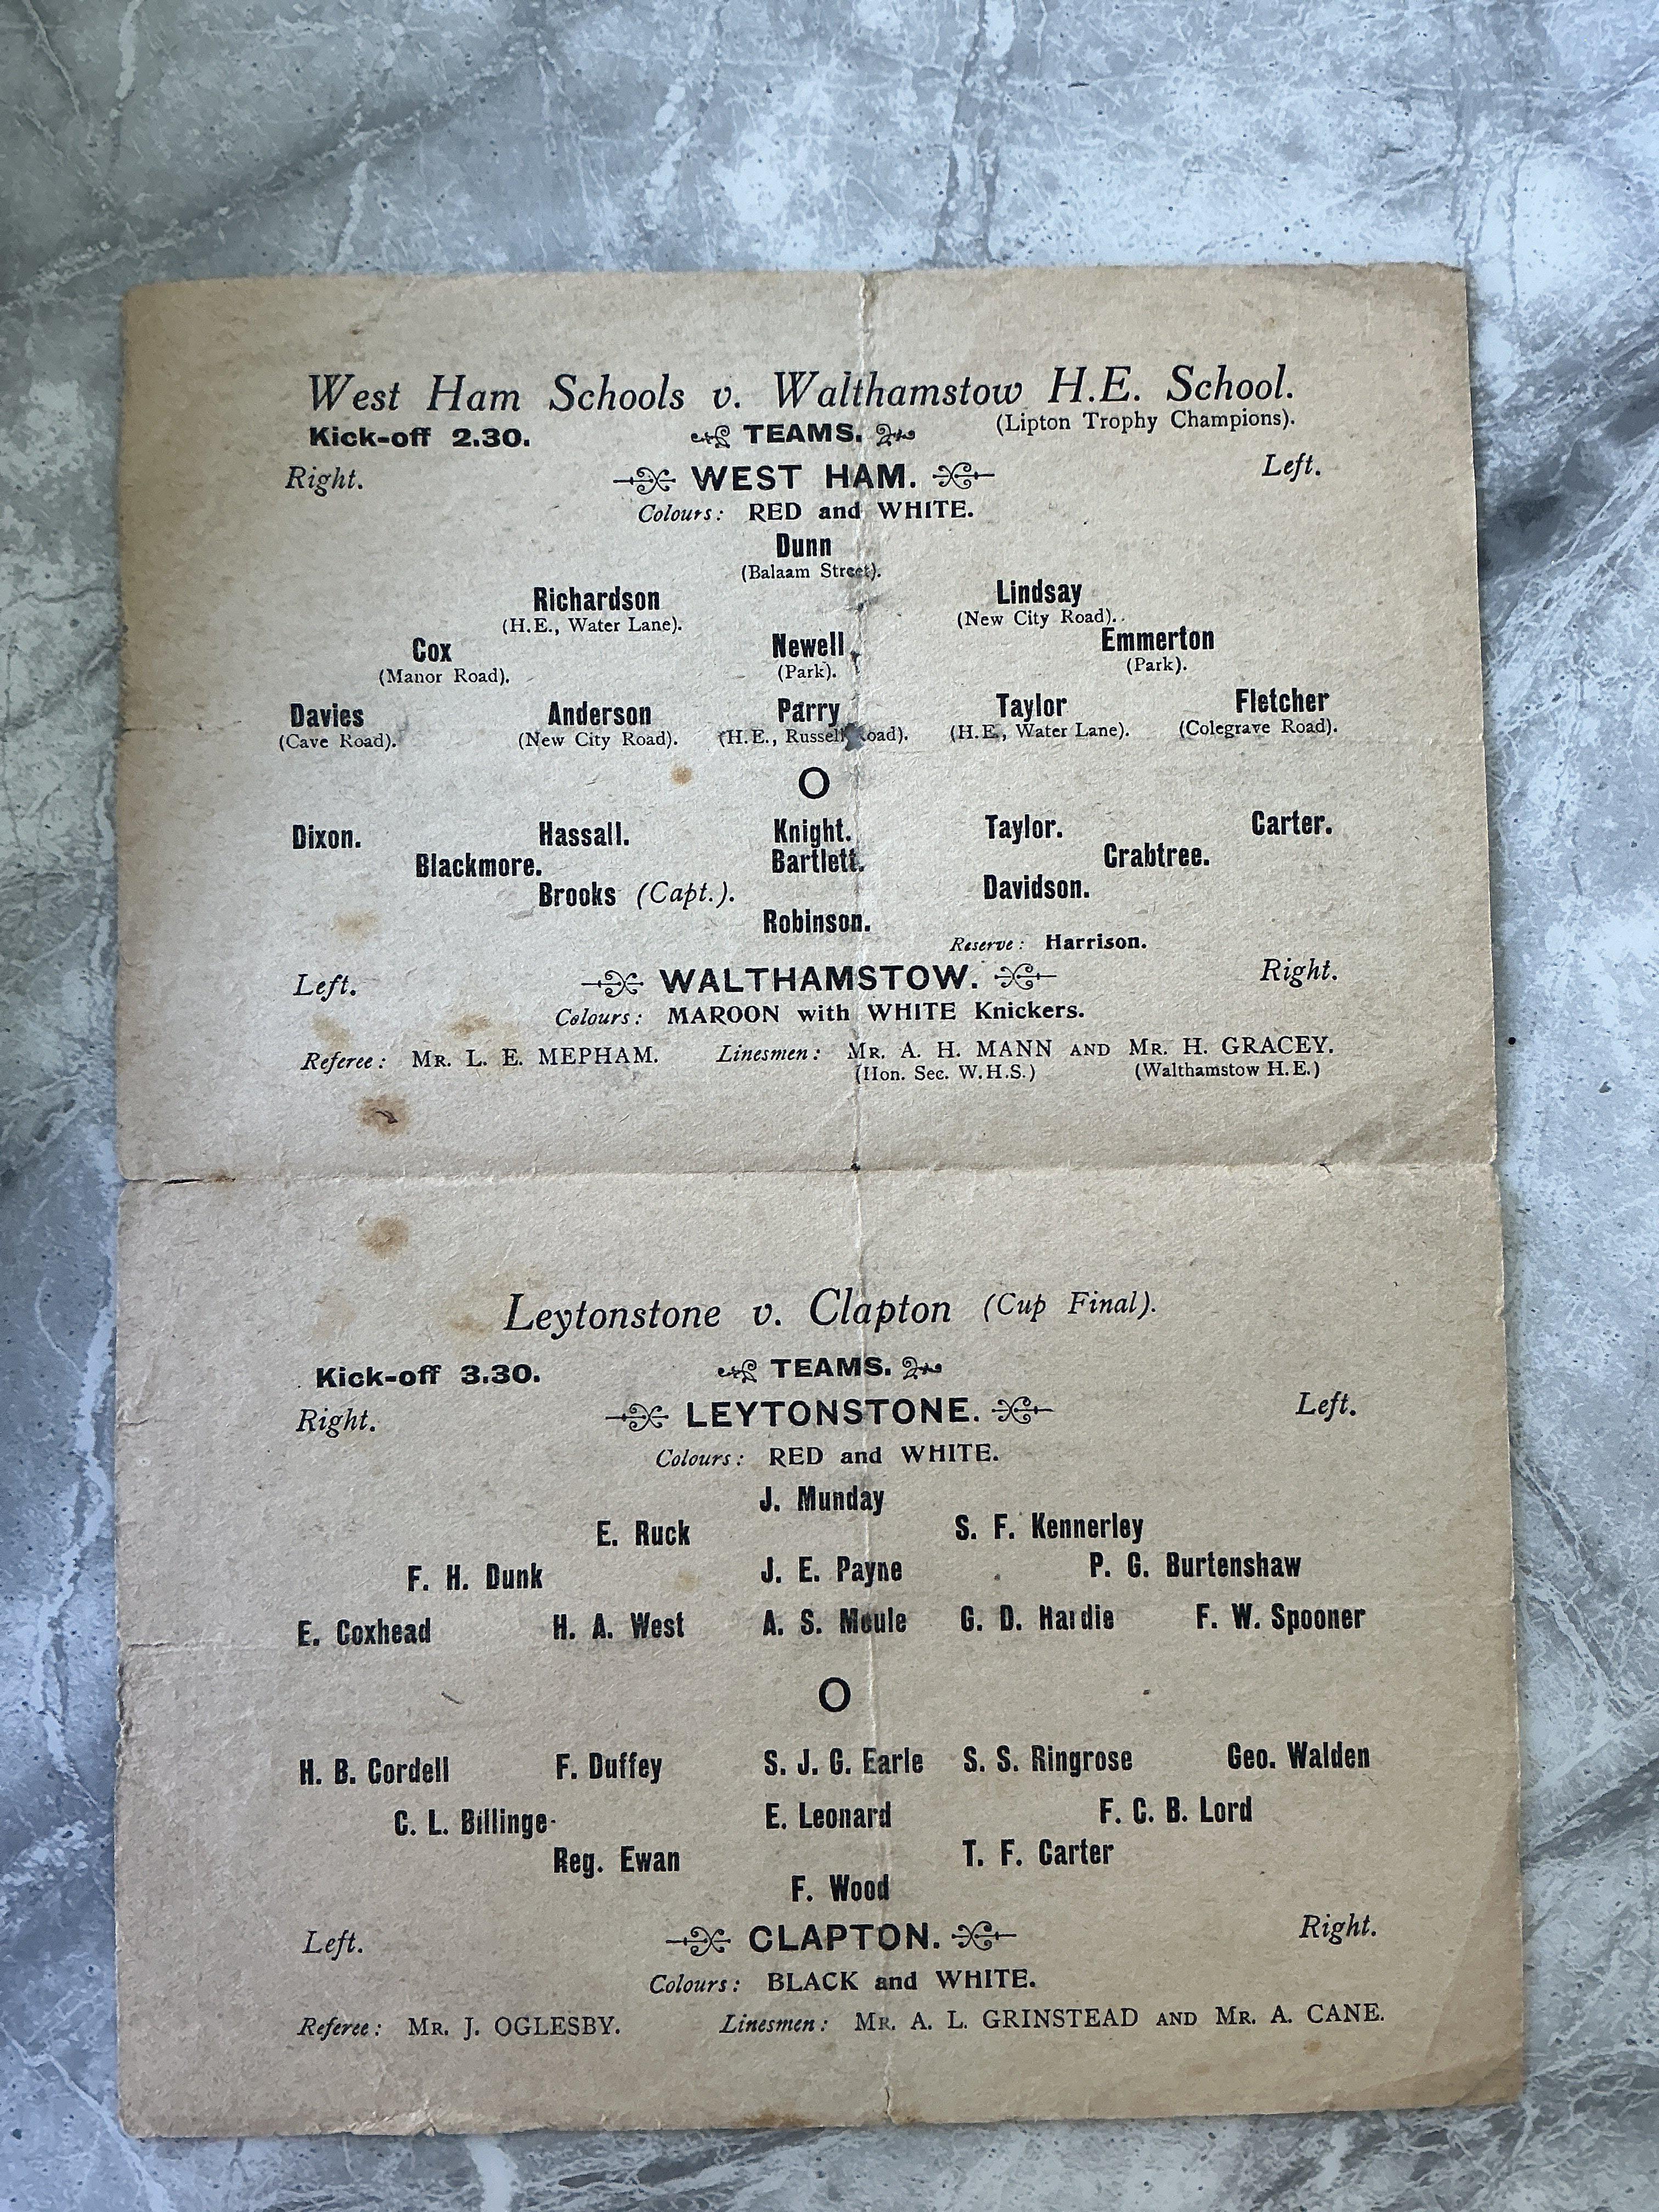 West Ham Schools v. Walthamstow H.E. School.
(Lipton Trophy Champions).
Kick-off 2.30. TEAMS.
Right. WEST HAM. Left.
Colours: RED and WHITE.
Dunn
(Balaam Street).
Richardson Lindsay
(H.E., Water Lane). (New City Road).
Cox Newell Emmerton
(Manor Road). (Park). (Park).
Davies Anderson Parry Taylor Fletcher
(Cave Road). (New City Road). (H.E., Russell Road). (H.E., Water Lane). (Colegrave Road).
O
Dixon. Hassall. Knight. Taylor. Carter.
Blackmore. Bartlett. Crabtree.
Brooks (Capt.). Davidson.
Robinson.
Reserve: Harrison.
Left. WALTHAMSTOW. Right.
Colours: MAROON with WHITE Knickers.
Referee: MR. L. E. MEPHAM. Linesmen: MR. A. H. MANN AND MR. H. GRACEY.
(Hon. Sec. W.H.S.) (Walthamstow H.E.)
Leytonstone v. Clapton (Cup Final).
Kick-off 3.30. TEAMS.
Right. LEYTONSTONE. Left.
Colours: RED and WHITE.
J. Munday
E. Ruck S. F. Kennerley
F. H. Dunk J. E. Payne P. G. Burtenshaw
E. Coxhead H. A. West A. S. Moule G. D. Hardie F. W. Spooner
O
H. B. Cordell F. Duffey S. J. G. Earle S. S. Ringrose Geo. Walden
C. L. Billinge E. Leonard F. C. B. Lord
Reg. Ewan T. F. Carter
F. Wood
Left. CLAPTON. Right.
Colours: BLACK and WHITE.
Referee: MR. J. OGLESBY. Linesmen: MR. A. L. GRINSTEAD AND MR. A. CANE.